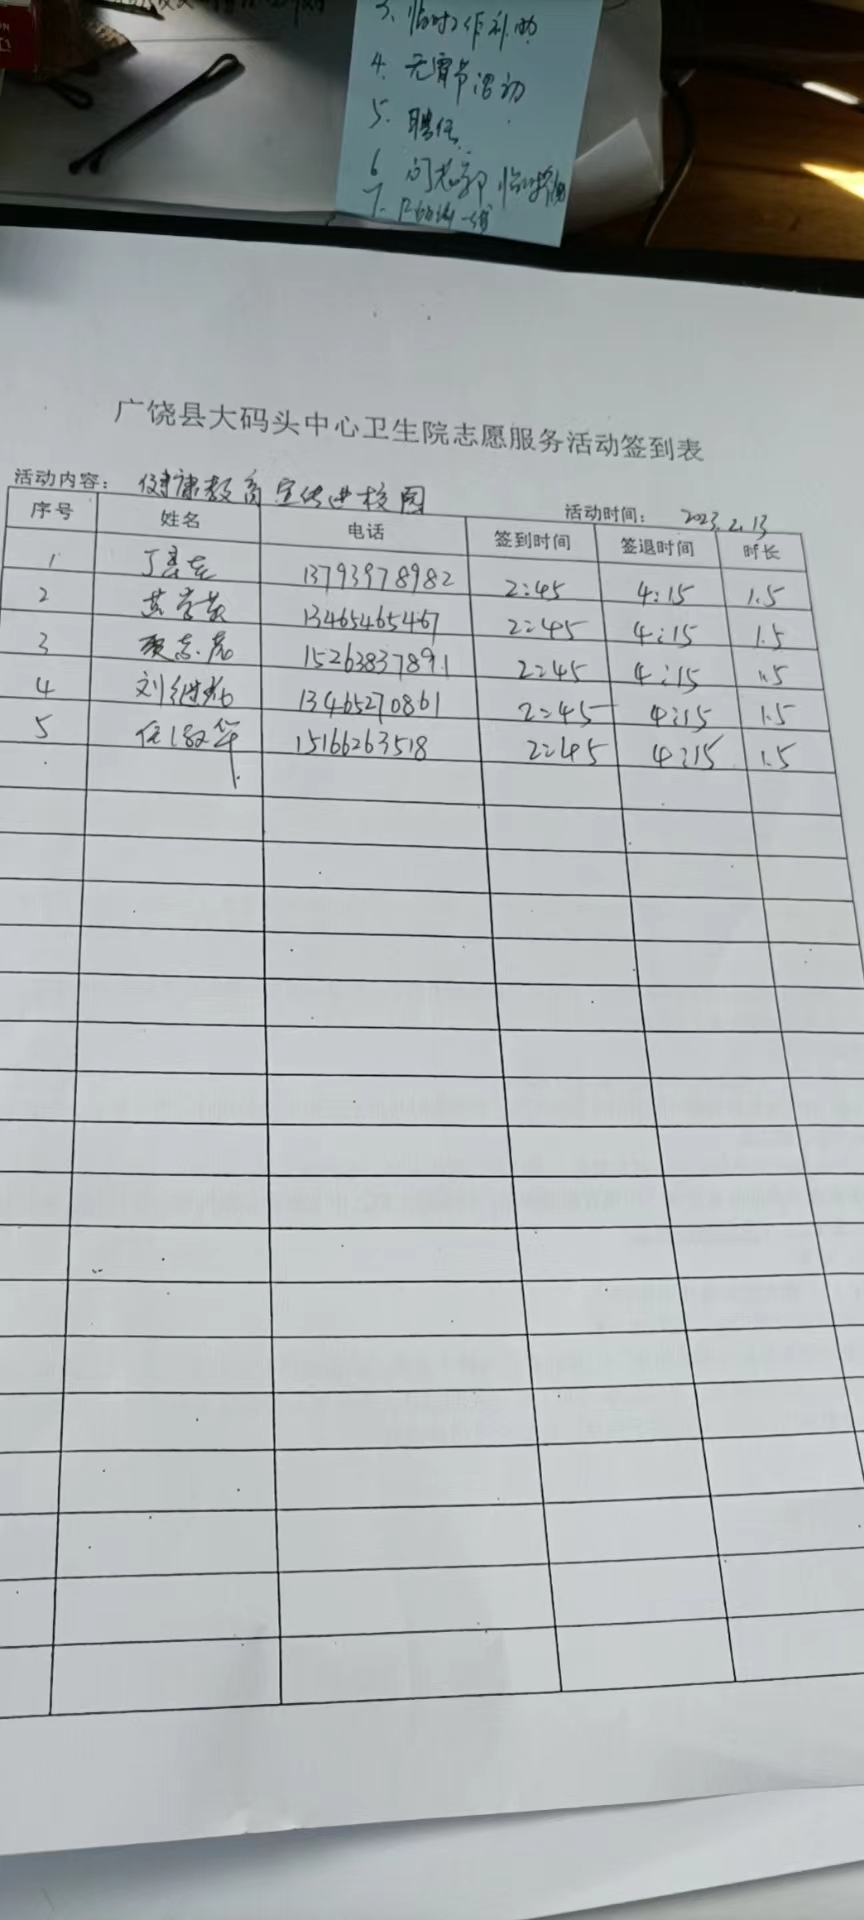 3、临时工作补助
4. 元宵节活动
5. 聘任
6
7.
广饶县大码头中心卫生院志愿服务活动签到表
活动内容： 健康教育宣传进校园 活动时间： 2023.2.13
序号 姓名 电话 签到时间 签退时间 时长
1 13793978982 2:45 4:15 1.5
2 13465465467 2:45 4:15 1.5
3 15263837891 2:45 4:15 1.5
4 刘继 13465270861 2:45 4:15 1.5
5 任 15166263518 2:45 4:15 1.5